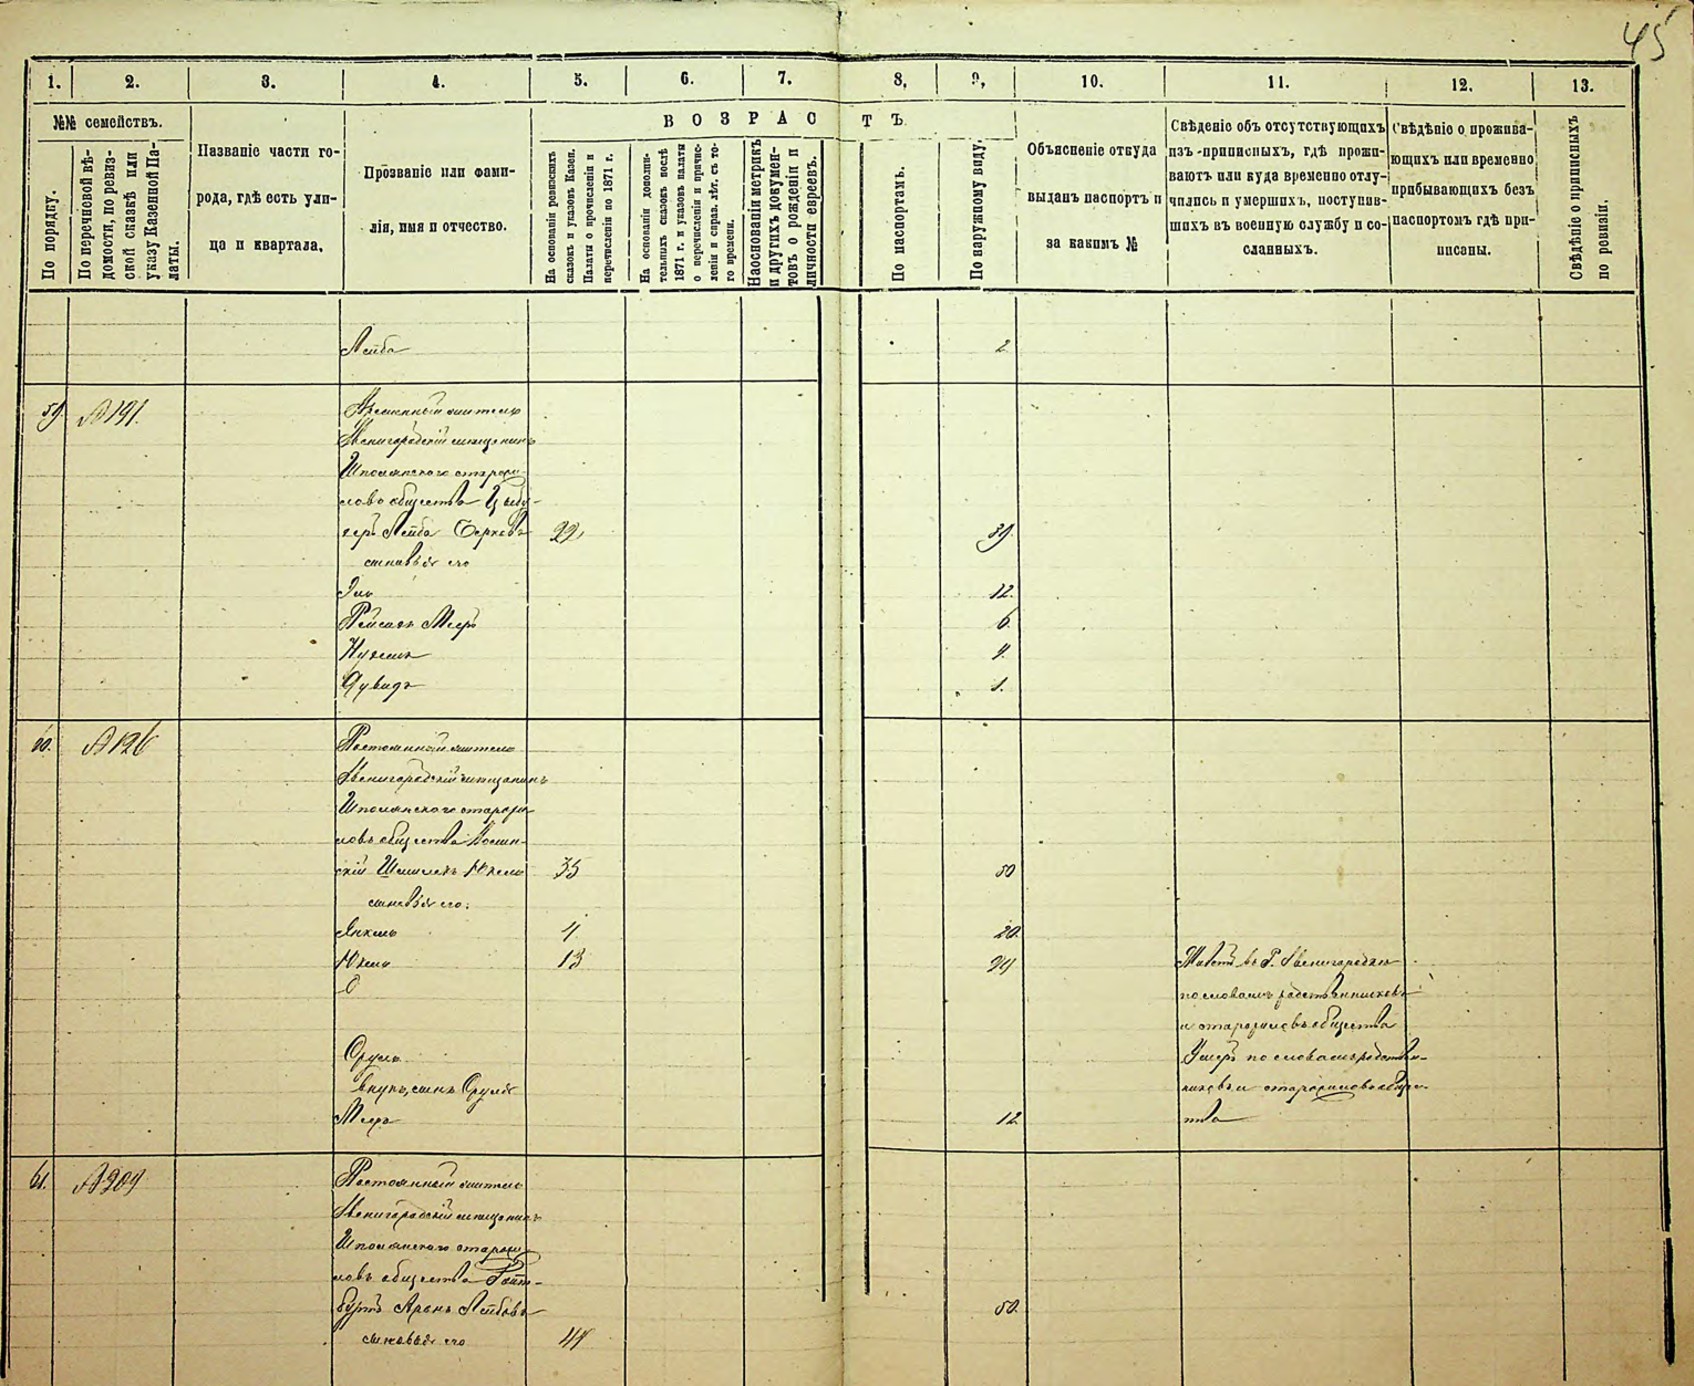 45
1. 2. 3. 4. 5. 6. 7. 8, 9, 10. 11. 12. 13.
№№ семействъ.
По порядку.
По перечневой вѣ-
домости, по ревиз-
ской сказкѣ или
указу Казенной Па-
латы.
Названіе части го-
рода, гдѣ есть ули-
ца и квартала.
Прозваніе или фами-
лія, имя и отчество.
ВОЗРАСТЪ
На основаніи ревизскихъ
сказокъ и указовъ Казен.
Палаты о причисленіи и
перечисленіи по 1871 г.
На основаніи дополни-
тельныхъ сказокъ послѣ
1871 г. и указовъ палаты
о перечисленіи и причис-
леніи и справ. лѣт. съ то-
го времени.
Наоснованіи метрикъ
и другихъ докумен-
товъ о рожденіи и
личности евреевъ.
По паспортамъ.
По наружному виду.
Объясненіе откуда
выданъ паспортъ и
за какимъ №
Свѣденіе объ отсутствующихъ
изъ приписныхъ, гдѣ прожи-
ваютъ или куда временно отлу-
чились и умершихъ, поступив-
шихъ въ военную службу и со-
сланныхъ.
Свѣдѣніе о прожива-
ющихъ или временно
прибывающихъ безъ
паспортомъ гдѣ при-
писаны.
Свѣдѣніе о приписныхъ
по ревизіи.
Лейба 2
59. №191.
Звенигородскій мѣщанинъ
Шполянскаго старожи-
ловъ общества
Лейба Берковъ 22 39.
сыновья его
12.
Мееръ 6
Нухимъ 4.
Дувидъ 1.
60. №126 Постоянный житель
Звенигородскій мѣщанинъ
Шполянскаго старожи
ловъ общества
скій Шмилекъ Юкель 35 50
сыновья его:
Янкель 4 20.
Юкель 13 24 Живетъ въ Г. Звенигородкѣ
по словамъ родственниковъ
и старожиловъ общества
Сруль Умеръ по словамъ родствен-
внукъ, сынъ Сруля никовъ и старожиловъ обще-
Меръ 12 тва
61. №209 Постоянный житель
Звенигородскій мѣщанинъ
Шполянскаго старожи
ловъ общества Ройт-
бурдъ Аронъ Лейбовъ 50.
сыновья его 44